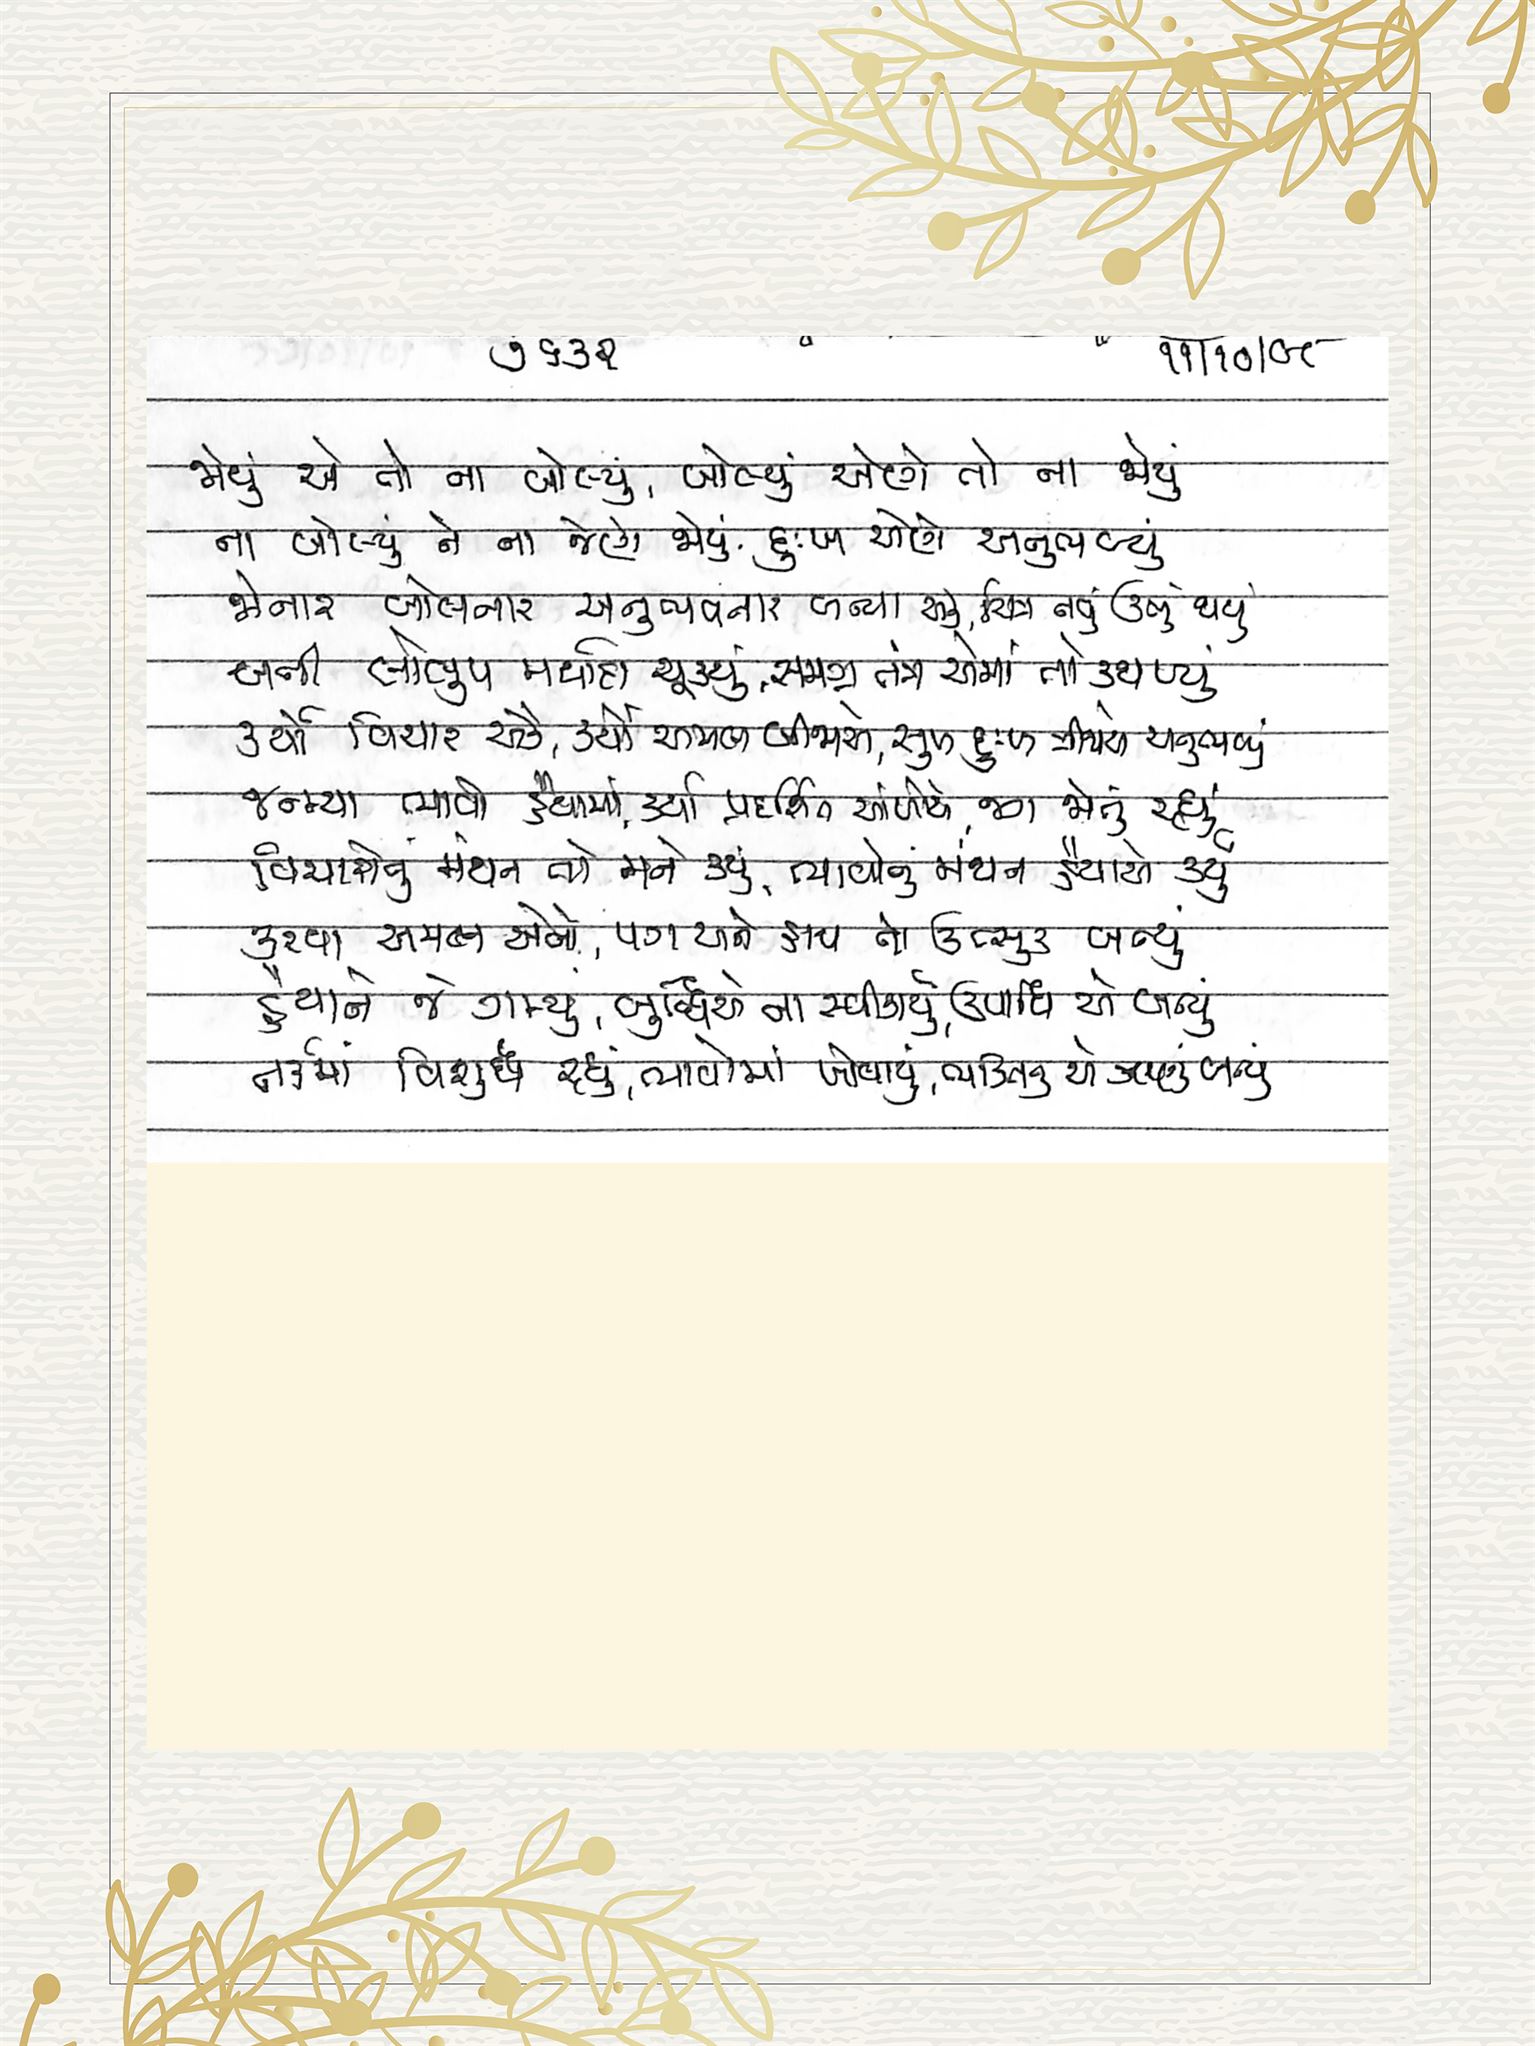 ૭૬૩૨ ૧૧/૧૦/૯૮
જોયું એ તો ના બોલ્યું, બોલ્યું એણે તો ના જોયું
ના બોલ્યું ને ના જેણે જોયું. દુઃખ એણે અનુભવ્યું
જોનાર બોલનાર અનુભવનાર બન્યા એક, ચિત્ર નવું ઊભું થયું
બની લોલુપ મર્યાદા ચૂક્યું, સમગ્ર તંત્ર એમાં તો ઉથપ્યું
કર્યો વિચાર એકે, કર્યો અમલ બીજાએ, સુખ દુઃખ ત્રીજાએ અનુભવ્યું
જન્મ્યા ભાવો હૈયામાં, કર્યા પ્રદર્શિત આંખોએ, જગ જોતું રહ્યું
વિચારોનું મંથન તો મને કર્યું, ભાવોનું મંથન હૈયાએ કર્યું
કરવા અમલ એનો, પગ અને હાથ તો ઉત્સુક બન્યું
હૈયાને જે ગમ્યું, બુદ્ધિએ ના સ્વીકાર્યું, ઉપાધિ એ બન્યું
નર્કમાં વિશુદ્ધ રહ્યું, ભાવોમાં ખોવાયું, ભક્તિનું એ બન્યું